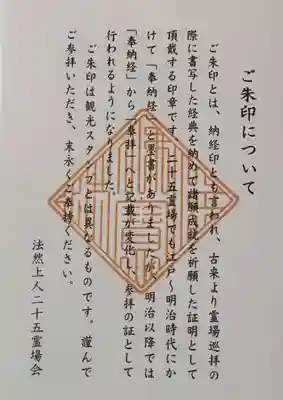 ご朱印について
ご朱印とは、納経印とも言われ、古来より霊場巡拝の
際に書写した経典を納めて諸願成就を祈願した証明として
頂戴する印章です。二十五霊場でも江戸～明治時代にか
けて「奉納経」と墨書がありましたが、明治以降では
「奉納経」から「奉拝」へと記載が変化し、参拝の証として
行われるようになりました。
ご朱印は観光スタンプとは異なるものです。謹んで
ご参拝いただき、末永くご奉持ください。
法然上人二十五霊場会